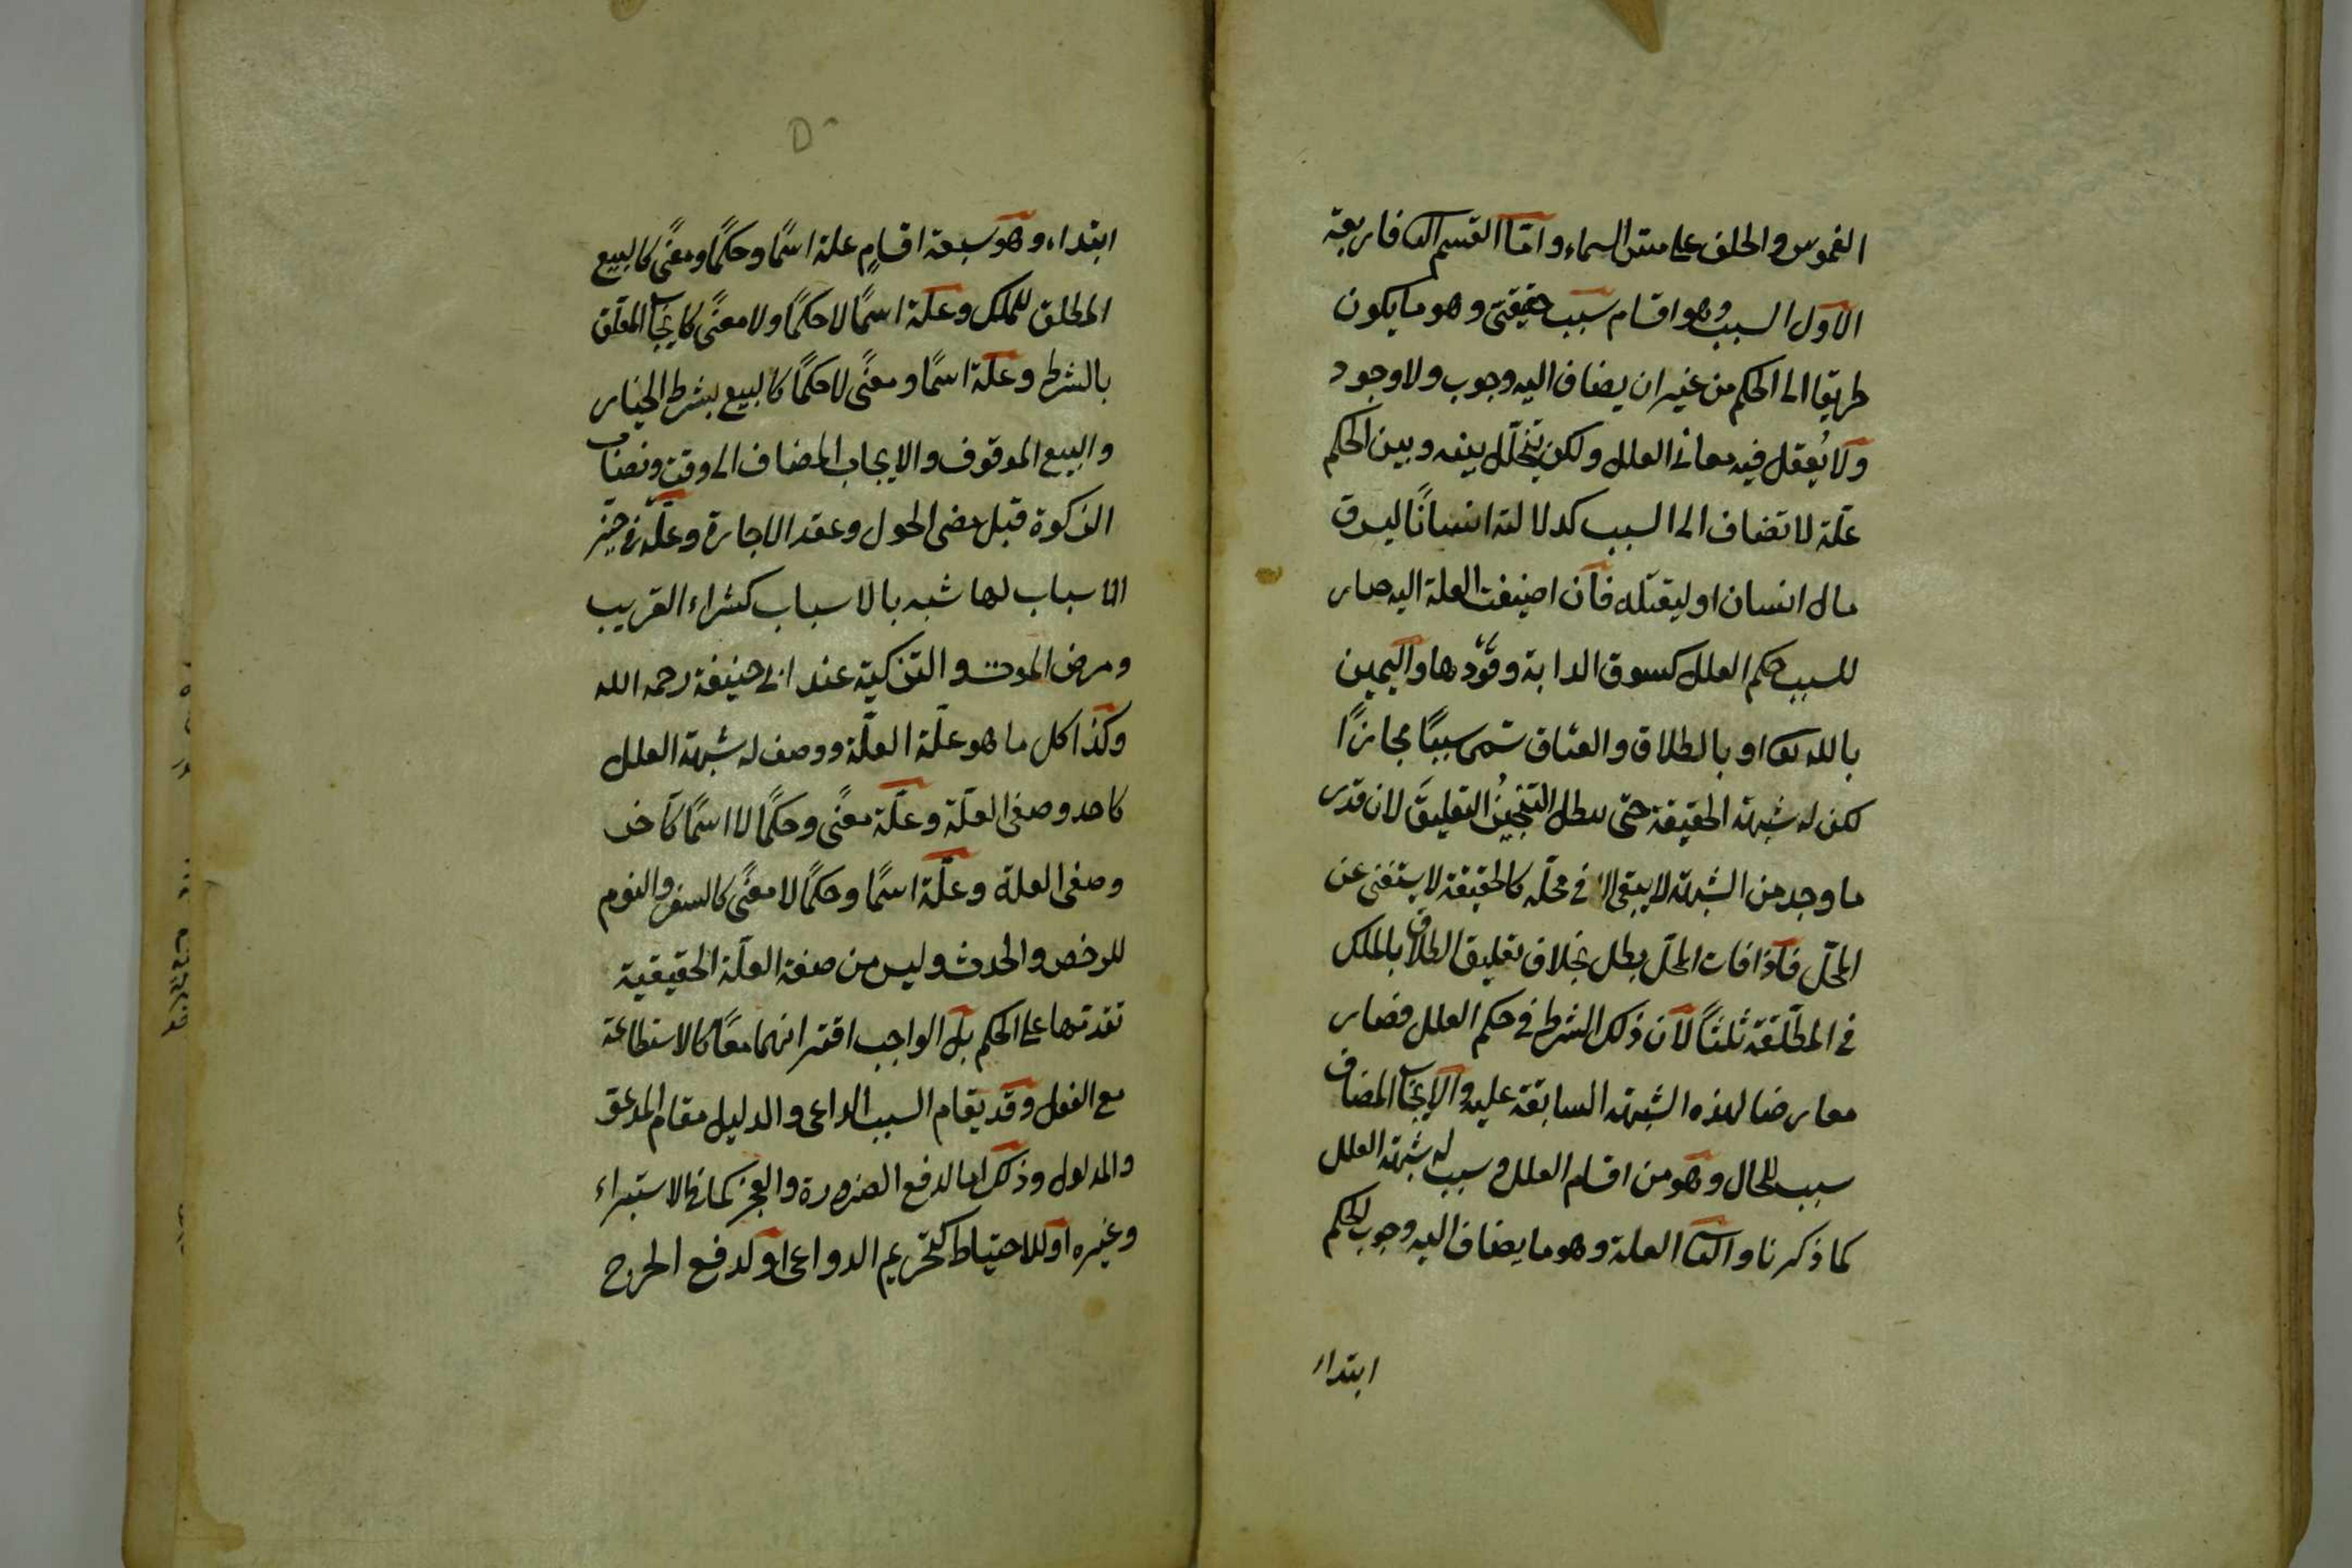 الغموس والحلف على مس السماء واما القسم الثا فاربعة
الاول السبب وهو اقسام سبب حقيقى وهو ما يكون
طريقا الى الحكم من غير ان يضاف اليه وجوب ولا وجود
ولا يُعقل فيه معانى العلل ولكن يتخلّل بينه وبين الحكم
علّة لا تضاف الى السبب كدلالته انسانًا ليسرق
مال انسان او ليقتله فان اضيفت العلة اليه صار
للسبب حكم العلل كسوق الدابة وقَوْدها واليمين
بالله تعا او بالطلاق والعتاق تسمى سببًا مجازًا
لكن له شبهة الحقيقة حتى يبطل التنجيزُ التعليقَ لان قدر
ما وجد من الشبهة لا يبقى الا فى محلّه كالحقيقة لا يستغنى عن
المحلّ فاذا فات المحلّ بطل بخلاف تعليق الطلاق بالملك
فى المطلّقة ثلثاً لان ذلك الشرط فى حكم العلل فصار
معارضا لهذه الشبهة السابقة عليه والايجاب المضاف
سبب للحال وهو من اقسام العلل وسبب له شبهة العلل
كما ذكرنا والثا العلة وهو ما يضاف اليه وجوب الحكم
ابتداء
ابتداء وهو سبعة اقسامٍ علة اسمًا وحكمًا ومعنًى كالبيع
المطلق للملك وعلّة اسمًا لا حكمًا ولا معنًى كايجاب المعلّق
بالشرط وعلّة اسمًا ومعنًى لا حكمًا كالبيع بشرط الخيار
والبيع الموقوف والايجاب المضاف الى وقت ونصاب
الزكوة قبل مضى الحول وعقد الاجارة وعلّة فى حيّز
الاسباب لها شبه بالاسباب كشراء القريب
ومرض الموت والتزكية عند ابى حنيفة رحمه الله
وكذا كل ما هو علّة العلّة ووصف له شبهة العلل
كاحد وصفى العلّة وعلّة معنًى وحكمًا لا اسمًا كآخر
وصفى العلة وعلّة اسمًا وحكمًا لا معنًى كالسفر والنوم
للرخص والحدث وليس من صفة العلّة الحقيقية
تقدمها على الحكم بل الواجب اقترانهما معًا كالاستطاعة
مع الفعل وقد يقام السبب الداعى والدليل مقام المدعو
والمدلول وذلك اما لدفع الضرورة والعجز كما فى الاستبراء
وغيره او للاحتياط كتحريم الدواعى او لدفع الحرج